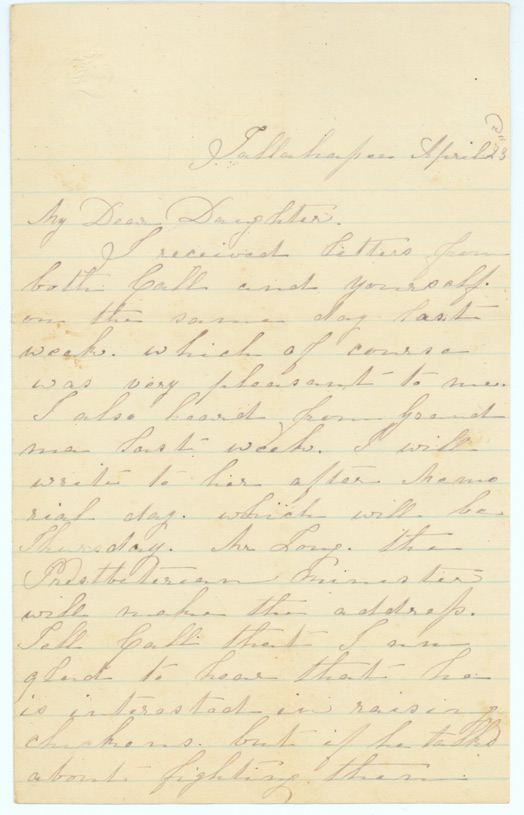 Tallahassee April 23
My Dear Daughter.
I received letters from
both Call and yourself.
on the same day last
week. which of course
was very pleasant to me.
I also heard from Grand
ma last week. I will
write to her after Memo
rial day. which will be
Thursday. Mr Long. the
Presbeterian minister
will make the address.
Tell Call that I am
glad to hear that he
is interested in raising
chickens. but if he talks
about fighting them.